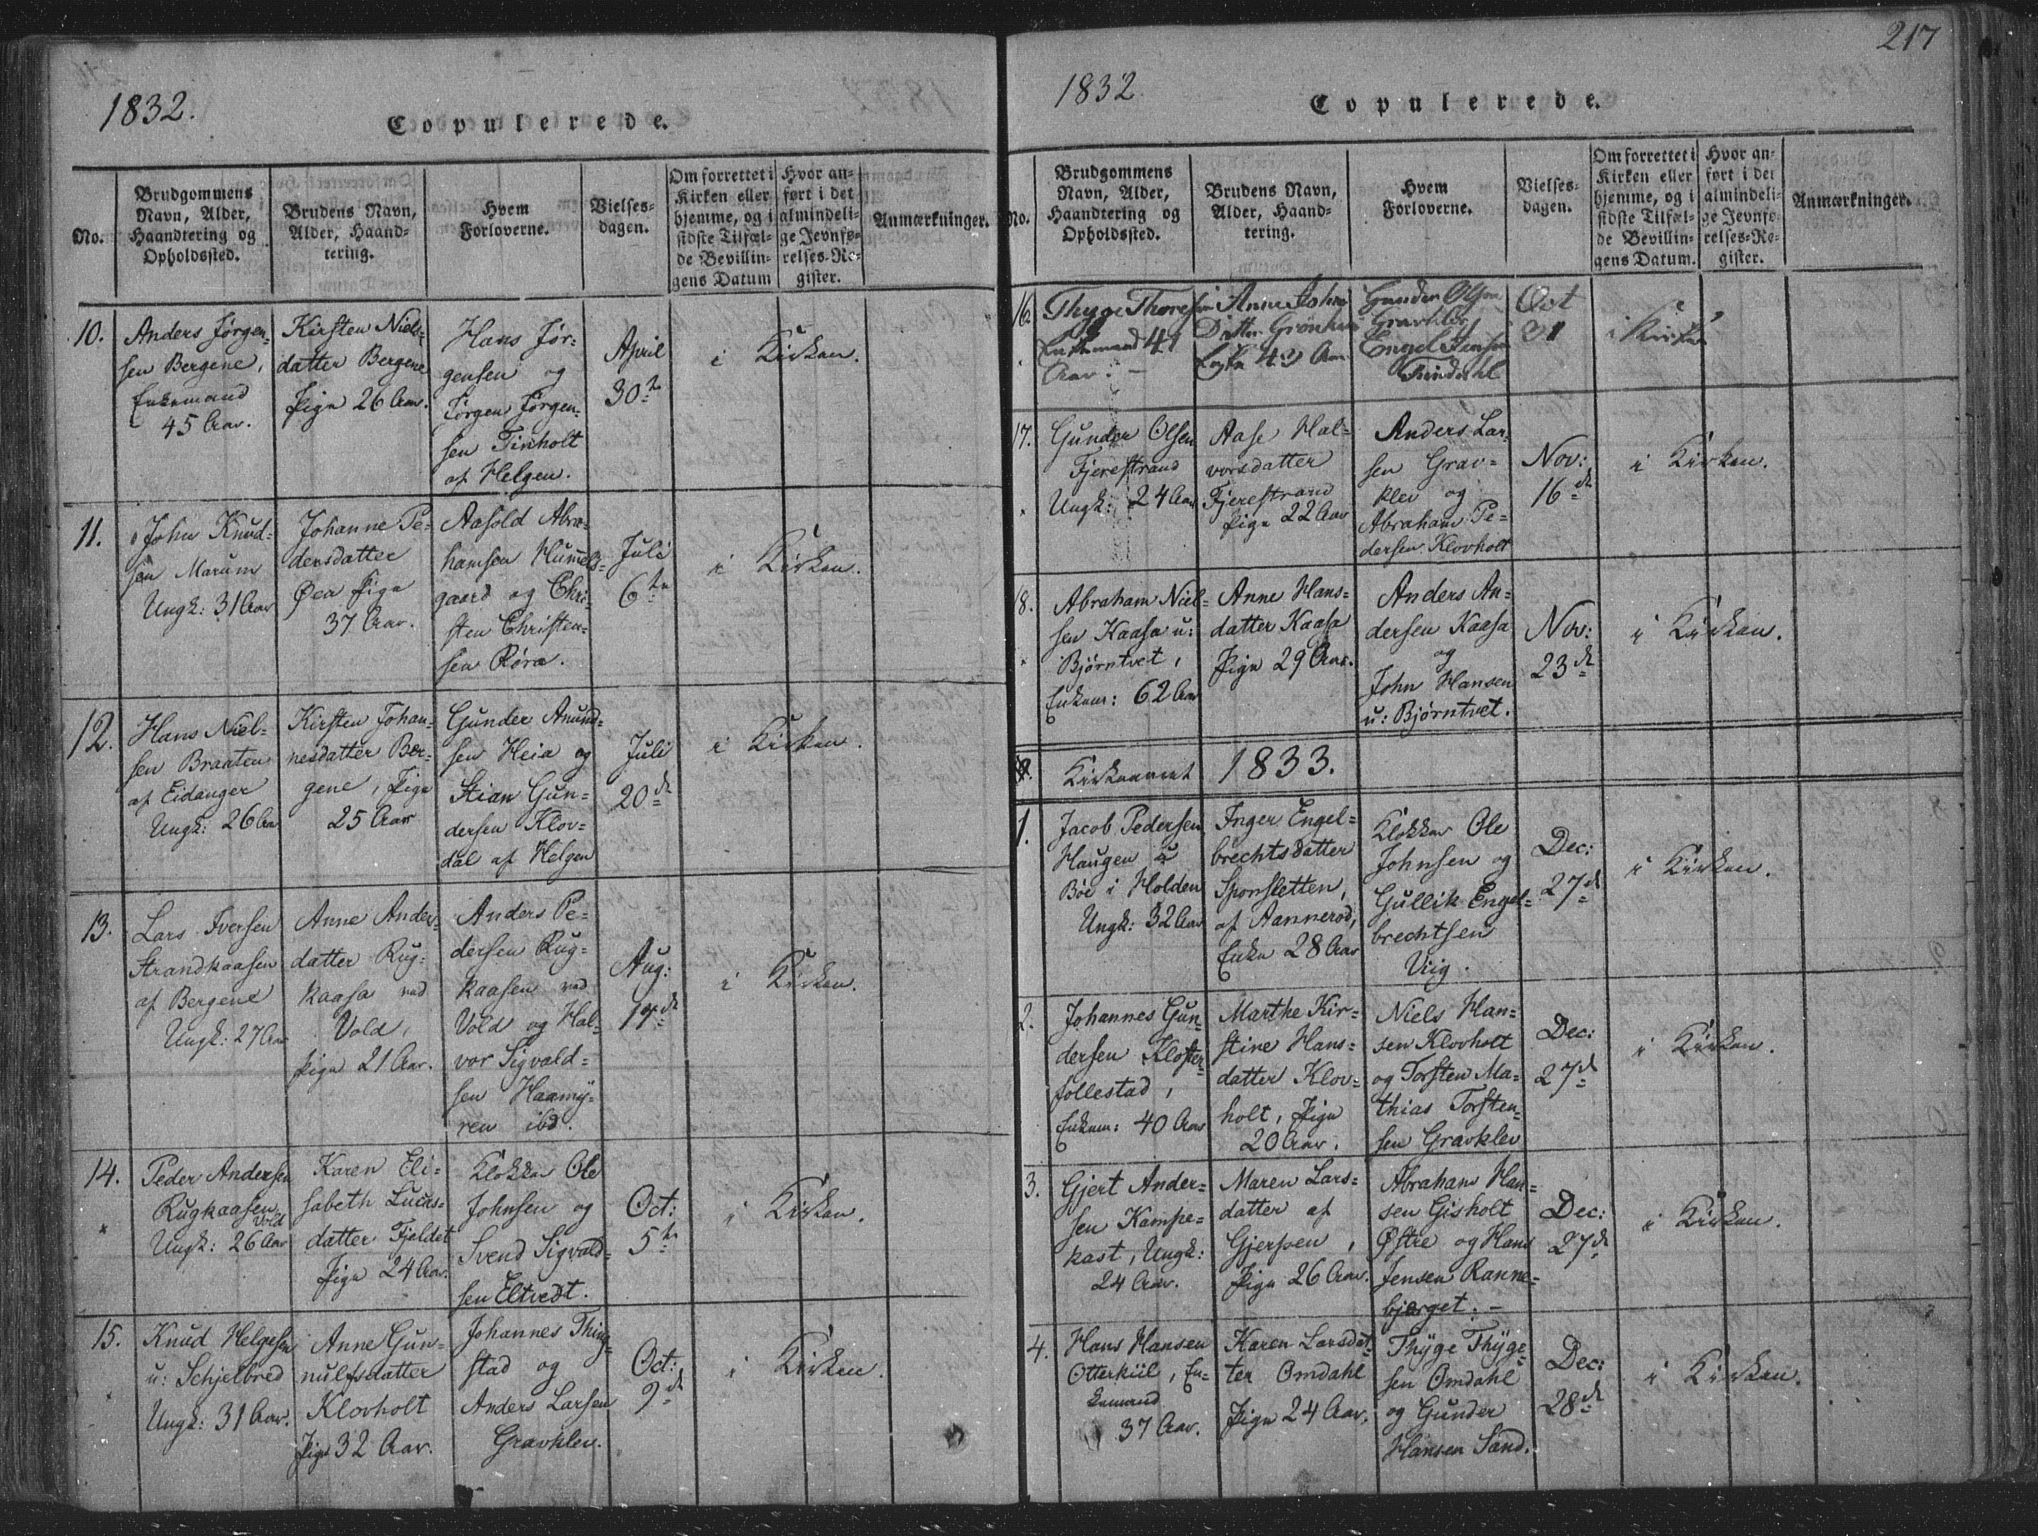 1832.
Copulerede.
No.
Brudgommens
Navn, Alder,
Haandtering og
Opholdssted.
Brudens Navn,
Alder, Haand-
tering.
Hvem
Forloverne.
Vielses-
dagen.
Om forrettet i
Kirken eller
hjemme, og i
sidste Tilfæl-
de Bevillin-
gens Datum
Hvor an-
ført i det
almindeli-
ge Jevnfø-
relses-Re-
gister.
Anmærkninger.
10.
Anders Jørgen-
sen Bergene,
Enkemand
45 Aar.
Kirsten Niels-
datter Bergene
Pige 26 Aar.
Hans Jør-
gensen og
Jørgen Jørgen-
sen Tinholt
af Helgen.
April
30te
i Kirken.
11.
John Knud-
sen Marum
Ungk: 31 Aar
Johanne Pe-
dersdatter
Øea Pige
37 Aar.
Aasold Abra-
hamsen Hummels-
gaard og Chri-
sten Christen-
sen Røra.
Juli
6te
i Kirken.
12.
Hans Niel-
sen Braaten
af Eidanger
Ungk: 26 Aar
Kirsten Johan-
nesdatter Ber-
gene, Pige
25 Aar
Gunder Anund-
sen Heia og
Stian Gun-
dersen Klov-
dal af Helgen
Juli
20de
i Kirken.
13.
Lars Iversen
Strandkaasen
af Bergene
Ungk: 27 Aar
Anne Anders-
datter Rug-
kaasa ved
Vold,
Pige 21 Aar.
Anders Pe-
dersen Rug-
kaasen ved
Vold og Hal-
vor Sigvald-
sen Haamy-
ren ibd.
Aug:
17de
i Kirken.
14.
Peder Andersen
Rugkaasen
Vold
Ungk: 26 Aar
Karen Eli-
sabeth Lucas-
datter Fjeldet
Pige 24 Aar.
Klokker Ole
Johnsen og
Svend Sigvald-
sen Eltvedt.
Oct:
5te
i Kirken.
15.
Knud Helgesen
u: Schjelbred
Ungk: 31 Aar.
Anne Gun-
nulfsdatter
Klovholt
Pige 32 Aar.
Johannes Thing-
stad og
Anders Larsen
Gravklev.
Oct:
9de
i Kirken.
217
1832
Copulerede.
No.
Brudgommens
Navn, Alder,
Haandtering og
Opholdssted.
Brudens Navn,
Alder, Haand-
tering.
Hvem
Forloverne.
Vielses-
dagen.
Om forrettet i
Kirken eller
hjemme, og i
sidste Tilfæl-
de Bevillin-
gens Datum.
Hvor an-
ført i det
almindeli-
ge Jevnfø-
relses-Re-
gister.
Anmærkninger.
16.
Thyge Thoresen
Enkemand 41
Aar.
Anne Johns
Datter
Enke 43 Aar
Gunder Olsen
Gravklev
Engel Jensen
Findahl
Oct
31
i Kirken
17.
Gunder Olsen
Fjerestrand
Ungk: 24 Aar
Aase Hal-
vorsdatter
Fjerestrand
Pige 22 Aar
Anders Lar-
sen Grav-
klev og
Abraham Pe-
dersen Klovholt
Nov:
16de
i Kirken.
18.
Abraham Niel-
sen Kaasa u:
Bjørntvet,
Enkem: 62 Aar
Anne Hans-
datter Kaasa
Pige 29 Aar.
Anders An-
dersen Kaasa
og
John Hansen
u: Bjørntvet.
Nov:
23de
i Kirken.
Kirkeaaret 1833.
1.
Jacob Pedersen
Haugen u
Bøe i Holden
Ungk: 32 Aar
Inger Engel-
brechtsdatter
Sponsletten,
af Aannerød,
Enke 28 Aar
Klokker Ole
Johnsen og
Gullik Engel-
brechtsen
Viig.
Dec:
27de
i Kirken.
2.
Johannes Gun-
dersen Kloster-
follestad,
Enkem: 40 Aar
Marthe Kir-
stine Hans-
datter Klov-
holt, Pige
20 Aar.
Niels Han-
sen Klovholt
og Torsten Ma-
thias Torsten-
sen Gravklev
Dec:
27de
i Kirken.
3.
Gjert Ander-
sen Kampe-
kast, Ungk:
24 Aar.
Maren Lars-
datter af
Gjerpen,
Pige 26 Aar.
Abraham Han-
sen Gisholt
Østre og Hans
Jensen Ranne-
bjerget. -
Dec:
27de
i Kirken.
4.
Hans Hansen
Otterkiil, En-
kemand
37 Aar.
Karen Larsdat-
ter Omdahl
Pige 24 Aar.
Thyge Thyge-
sen Omdahl
og Gunder
Hansen Sand.
Dec:
28de
i Kirken.